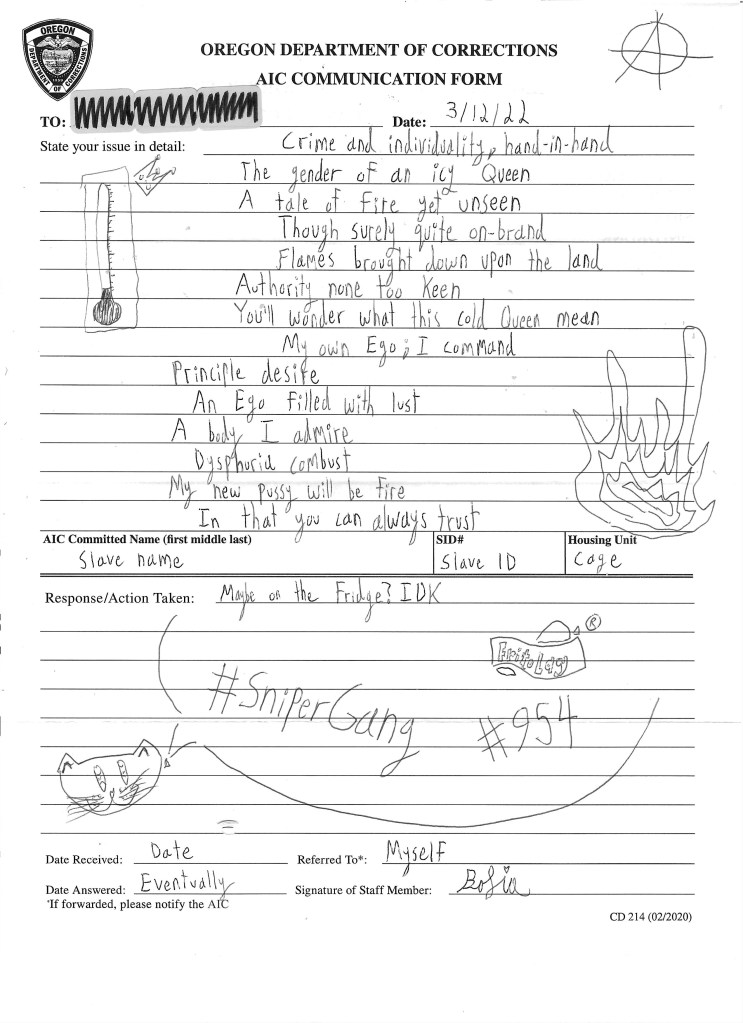 OREGON
DEPARTMENT OF CORRECTIONS
OREGON DEPARTMENT OF CORRECTIONS
AIC COMMUNICATION FORM
TO:
Date: 3/12/22
State your issue in detail: Crime and individuality, hand-in-hand
The gender of an icy Queen
A tale of Fire yet unseen
Though surely quite on-brand
Flames brought down upon the land
Authority none too Keen
You'll wonder what this cold Queen mean
My own Ego; I command
Principle desire
An Ego filled with lust
A body I admire
Dysphoric combust
My new pussy will be fire
In that you can always trust
AIC Committed Name (first middle last) SID# Housing Unit
Slave name Slave ID Cage
Response/Action Taken: Maybe on the Fridge? IDK
FritoLay ®
#SniperGang #954
Date Received: Date Referred To*: Myself
Date Answered: Eventually Signature of Staff Member:
*If forwarded, please notify the AIC
CD 214 (02/2020)